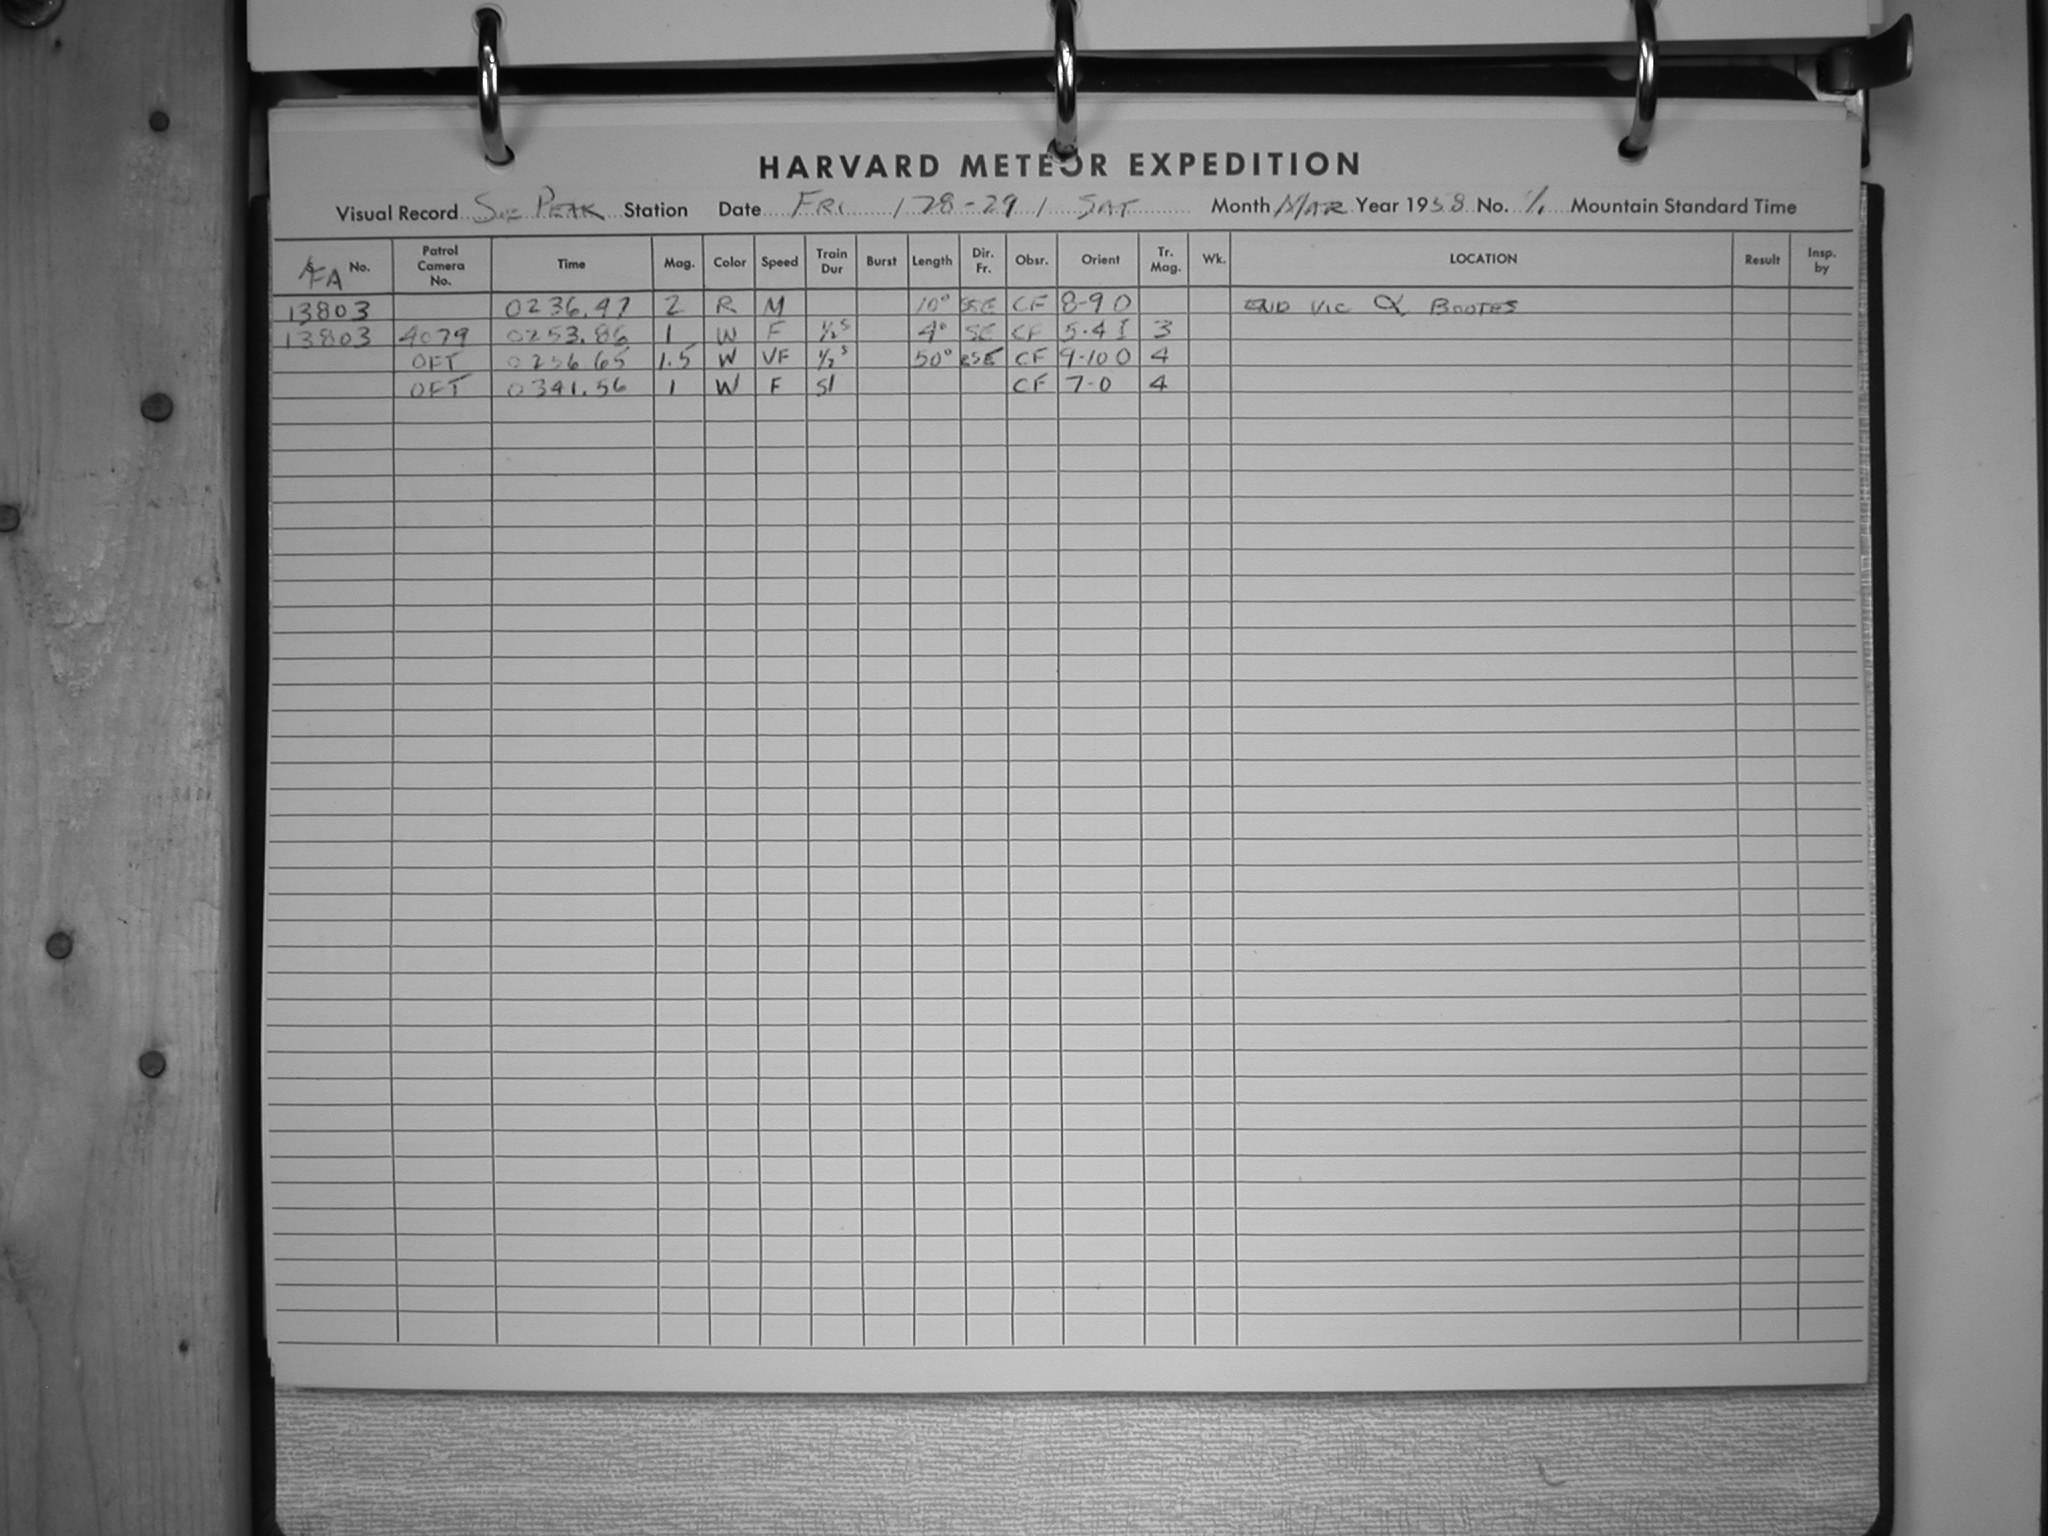 HARVARD METEOR EXPEDITION
Visual Record Sac Peak Station Date Fri / 28-29 / Sat Month Mar Year 1958 No. 1/1 Mountain Standard Time
FA No. Patrol Camera No. Time Mag. Color Speed Train Dur Burst Length Dir. Fr. Obsr. Orient Tr. Mag. Wk. LOCATION Result Insp. by
13803 0236.47 2 R M 10° SSE CF 8-9 O END VIC α BOOTES
13803 4079 0253.86 1 W F 1/2 S 4° SE CF 5-4 I 3
OFT 0256.65 1.5 W VF 1/2 S 50° ESE CF 9-10 O 4
OFT 0341.56 1 W F Sl CF 7-O 4